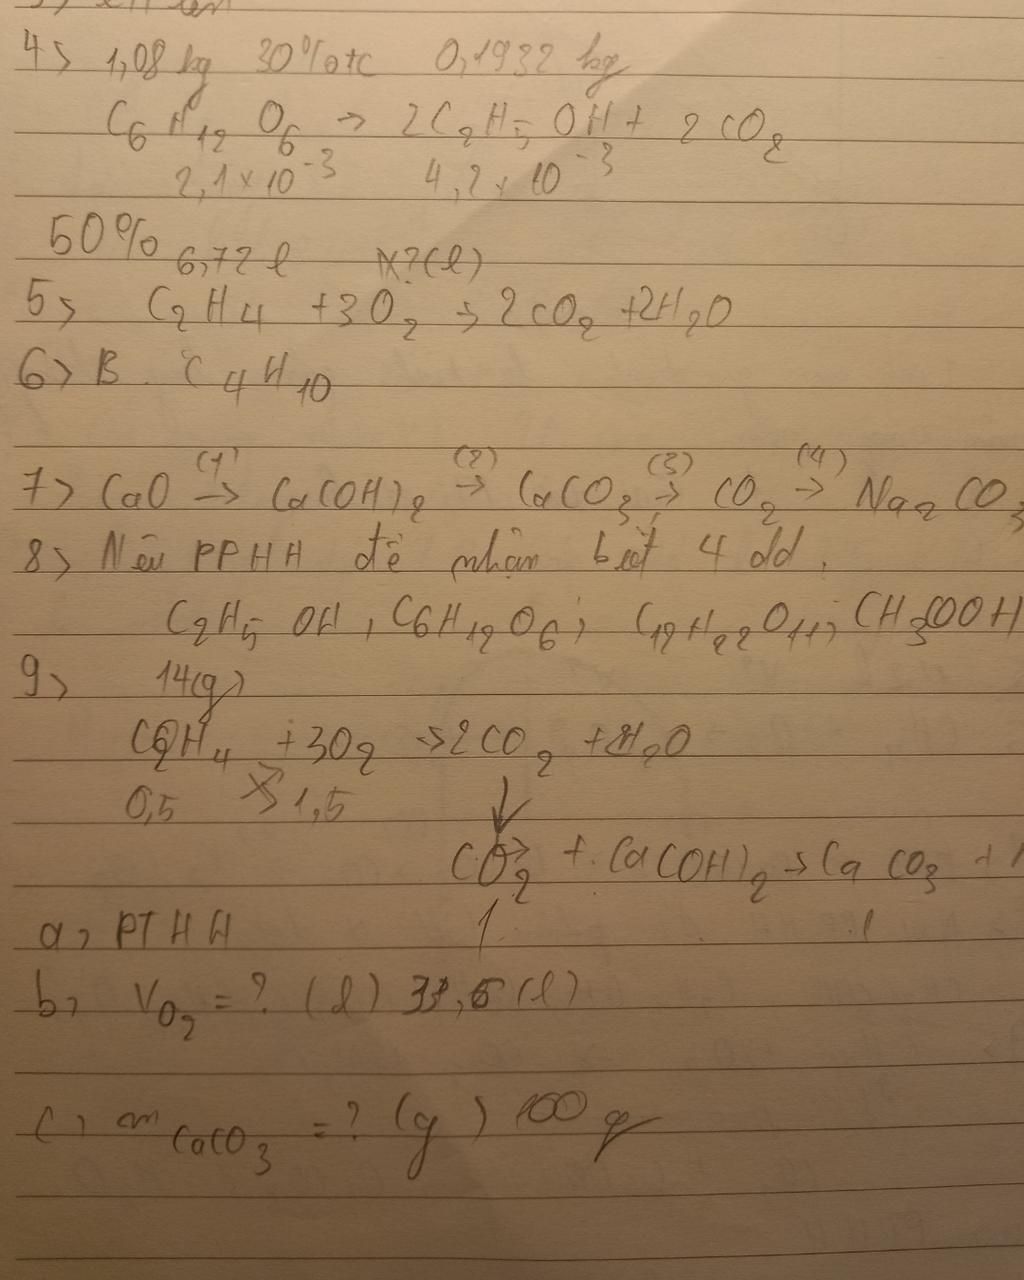 4> 1,08 kg 30% tc 0,1932 kg
C6 H12 O6 → 2C2H5OH + 2CO2
2,1×10⁻³ 4,2×10⁻³
50% 6,72 l ?(l)
5> C2H4 +3O2 → 2CO2 +2H2O
6> B. C4H10
7> CaO (1)→ Ca(OH)2 (2)→ CaCO3 (3)→ CO2 (4)→ Na2CO3
8> Nêu PPHH để nhận biết 4 dd.
C2H5OH, C6H12O6; C12H22O11; CH3COOH
9> 14(g)
C2H4 +3O2 → 2CO2 +2H2O
0,5 → 1,5
CO2 + Ca(OH)2 → CaCO3 +
1 1
a, PTHH
b, VO2 = ? (l) (l)
c, mCaCO3 = ? (g) 100 g